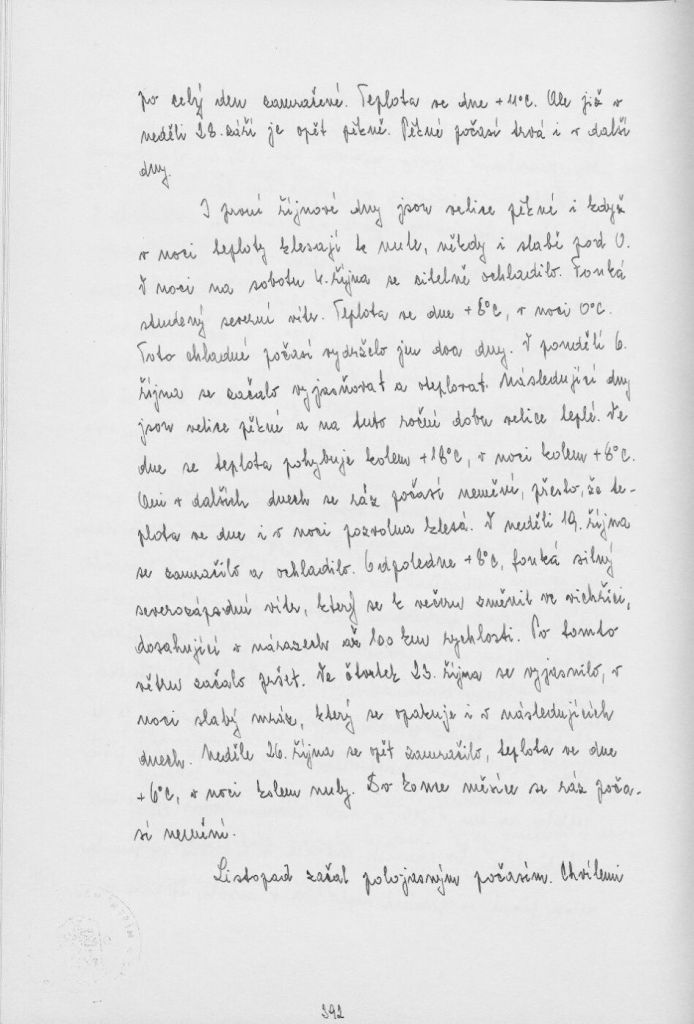 po celý den zamračené. Teplota ve dne +11°C. Ale již v
neděli 28. září je opět pěkně. Pěkné počasí trvá i v další
dny.
I první říjnové dny jsou velice pěkné i když
v noci teploty klesají k nule, někdy i slabě pod 0.
V noci na sobotu 4. října se citelně ochladilo. Fouká
studený severní vítr. Teplota ve dne +8°C, v noci 0°C.
Toto chladné počasí vydrželo jen dva dny. V pondělí 6.
října se začalo vyjasňovat a oteplovat. Následující dny
jsou velice pěkné a na tuto roční dobu velice teplé. Ve
dne se teplota pohybuje kolem +18°C, v noci kolem +8°C.
Ani v dalších dnech se ráz počasí nemění, přesto, že te-
plota ve dne i v noci pozvolna klesá. V neděli 19. října
se zamračilo a ochladilo. Odpoledne +8°C, fouká silný
severozápadní vítr, který se k večeru změnil ve vichřici,
dosahující v nárazech až 100 km rychlosti. Po tomto
větru začalo pršet. Ve čtvrtek 23. října se vyjasnilo, v
noci slabý mráz, který se opakuje i v následujících
dnech. Neděle 26. října se opět zamračilo, teplota ve dne
+6°C, v noci kolem nuly. Do konce měsíce se ráz poča-
sí nemění.
Listopad začal polojasným počasím. Chvílemi
392